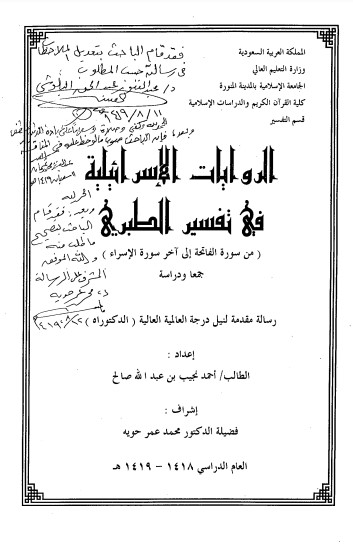 المملكة العربية السعودية
وزارة التعليم العالي
الجامعة الإسلامية بالمدينة المنورة
كلية القرآن الكريم والدراسات الإسلامية
قسم التفسير
فقد قام الباحث بتعديل الملاحظات
في رسالته حسب المطلوب
الروايات الإسرائيلية
في تفسير الطبري
( من سورة الفاتحة إلى آخر سورة الإسراء )
جمعا ودراسة
الحمد لله
وبعد فقد قام
الباحث بتصحيح
ما طلب منه
والله الموفق
المشرف على الرسالة
د. محمد عمر حويه
رسالة مقدمة لنيل درجة العالمية العالية ( الدكتوراه )
إعداد :
الطالب/ أحمد نجيب بن عبد الله صالح
إشراف :
فضيلة الدكتور محمد عمر حويه
العام الدراسي ١٤١٨ - ١٤١٩ هـ